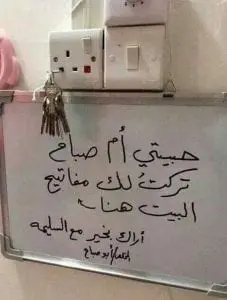 حبيبتي أم صباح
تركتُ لك مفاتيح
البيت هنا
أراك بخير مع السليمه
أبو صباح